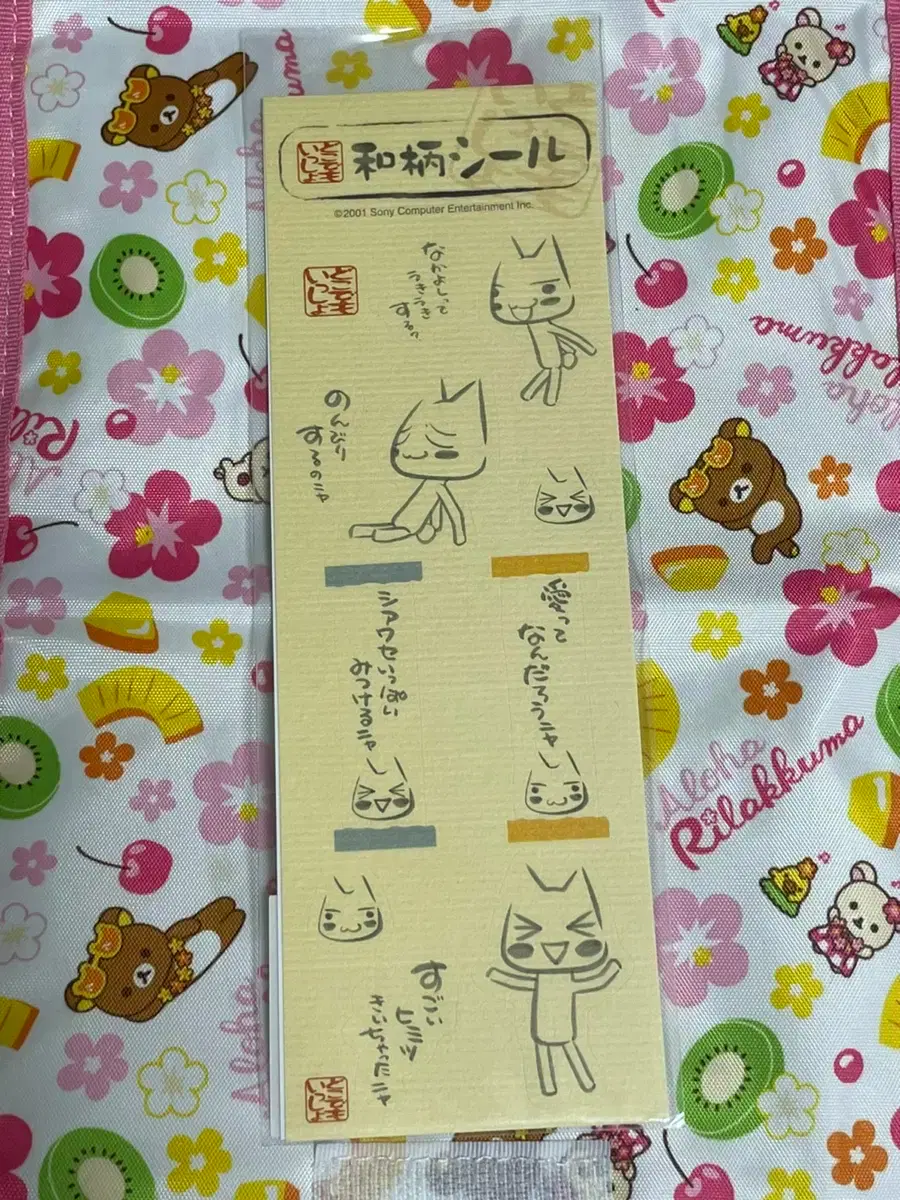 どこでもいっしょ
和柄シール
©2001 Sony Computer Entertainment Inc.
どこでもいっしょ
なかよしって
うきうき
するっ
のんびり
するのニャ
愛って
なんだろうニャ
シアワセいっぱい
みつけるニャ
すごい
ヒミツ
きいちゃったニャ
どこでもいっしょ
Aloha
Rilakkuma
Aloha
Rilakkuma
Aloha
Ril
Aloha